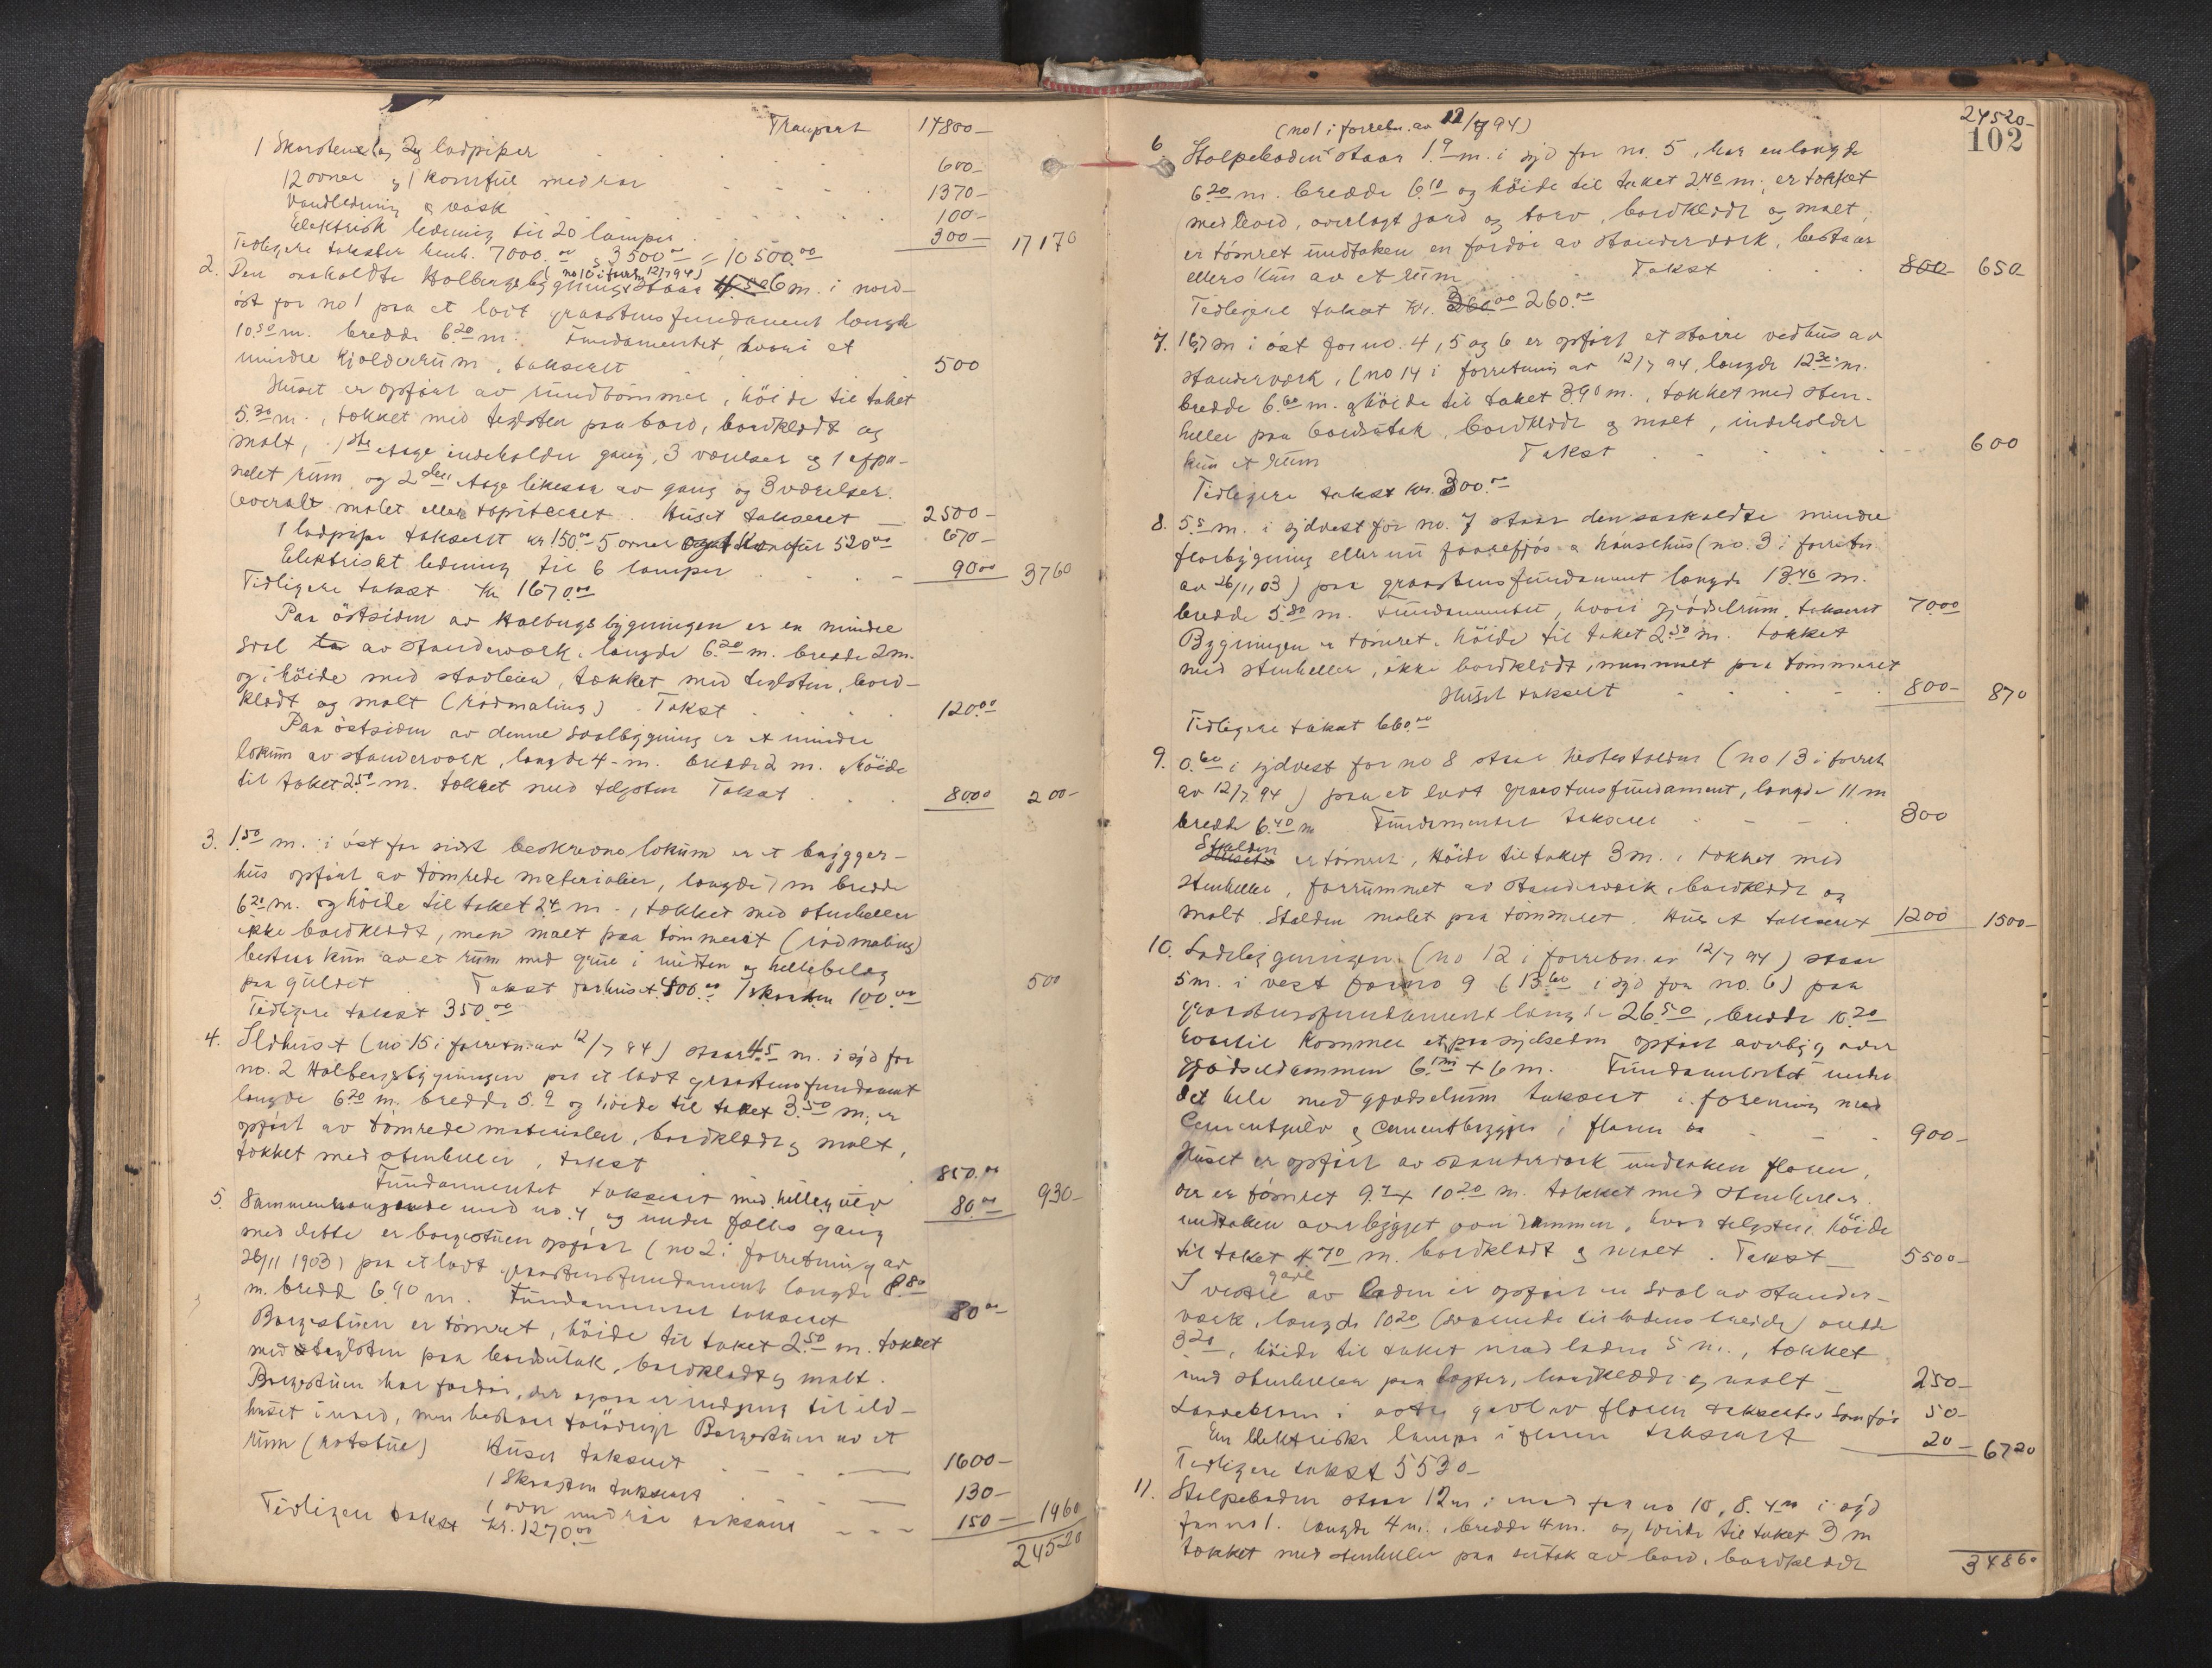 Transport 14800-
1 Skorstene og 2 ladpiper 600-
12 ovner og 1 komfür med rør 1370-
Vandledning & vask 100-
Elektrisk ledning til 20 lamper 300- 17170
Tidligere takster henh. 7000.00 & 3500.00 = 10500.00
(no 10 i forretn. 12/7 94)
2. Den saakaldte Holbergsbygning staar 6 m. i nord-
øst for no 1 paa et lavt graastensfundament længde
10.50 m. bredde 6.20 m. Fundamentet, hvori et
mindre kjælderrüm, takseret 500
Huset er opført av rundtømmer, høide til taket
5.30 m., tækket med teglsten paa bord, bordklædt og
malt, 1ste Etage indeholder gang, 3 værelser og 1 afpa-
nelet rüm, og 2den Etage likesaa av gang og 3 værelser.
Overalt malet eller tapiceret. Huset takseret 2500-
1 ladpipe takseret kr 150.00 5 ovner og 1 Komfür 520.00 670-
Elektriskt ledning til 6 lamper 90.00 3760
Tidligere takst Kr 1670.00
Paa östsiden av Holbergsbygningen er en mindre
sval av standerværk. længde 6.20 m. bredde 2 m.
og i höide med stavleien, tækket med teglsten, bord-
klædt og malt (rödmaling). Takst 120.00
Paa östsiden av denne svalbygning er et mindre
lokum av standerværk, længde 4- m. bredde 2 m. Höide
til taket 2.50 m. tækket med teglsten Takst 80.00 200-
3. 1.50 m. i öst for sidst beskrevne loküm er et brygger-
hüs opfört av tömrede materialier, længde 7 m bredde
6.20 m. og höide til taket 2.4 m., tækket med stenheller
ikke bordklædt, men malt paa tömmeret (rödmaling)
bestaar kün av et rüm med grüe i midten og hellebelæg
paa gülvet Takst for huset 400.00 1 skorsten 100.00 500
Tidligere takst 350.00
4. Ildhuset (no 15 i forretn. av 12/7 94) staar 4.5 m. i syd for
no. 2 Holbergsbygningen paa et lavt graastensfundament
længde 6.20 m. bredde 5.9 og höide til taket 3.50 m; er
opfört av tömrede materialier, bordklædt og malt,
tækket med stenheller, takst 850.00
Fundamentet takseret med hellegülv 80.00 930-
5. Sammenhængende med no. 4, og ünder fælles gang
med dette er borgestüen opfört (no 2 i forretning av
26/11 1903) paa et lavt graastensfundament længde 8.80
m. bredd 6.90 m. Fundamentet takseret 80.00
Borgestüen er tömret, höide til taket 2.50 m. tækket
med teglsten paa bordsütak, bordklædt og malt.
Borgestüen har fordör, der ogsaa er indgang til ild-
huset i nord, men bestaar forövrigt Borgestüen av et
rüm (rotstüe) Huset takseret 1600-
1 Skorsten takseret 130-
1 ovn med rör takseret 150- 1960
Tidligere takst kr. 1270.00
24520
24520-
102
(no 1 i forretn. av 12/7 94)
6. Stolpeboden staar 1.9 m. i syd for no. 5, har en længde
6.20 m. bredde 6.10 og höide til taket 2.40 m; er tækket
med bord, overlagt jord og torv, bordklædt og malt;
er tömret undtaken en fordör av standerværk, bestaar
ellers kün av et rüm Takst 800- 650
Tidligere takst Kr. 260.00
7. 16,7 m i öst for no. 4, 5 og 6 er opfört et större vedhüs av
standerværk, (no 14 i forretning av 12/7 94, længde 12.30 m.
bredde 6.60 m. & höide til taket 3.90 m., tækket med sten-
heller paa bordsutak, bordklædt og malt, indeholder
kün et rüm Takst 600
Tidligere takst kr. 300.00
8. 5.5 m. i sydvest for no. 7 staar den saakaldte mindre
florbygning eller nü faarefjös & hönsehüs (no. 3 i forretn.
av 26/11 03) paa graastensfündament længde 13.40 m.
bredde 5.80 m. Fündamentet, hvori gjödselrüm, takseret 70.00
Bygningen er tömret. höide til taket 2.50 m. tækket
med stenheller, ikke bordklædt, men malt paa tömmeret
Huset takseret 800- 870
Tidligere takst 660.00
9. 0.60 i sydvest for no 8 staar hestestalden (no 13 i forretn
av 12/7 94) paa et lavt graastensfündament, længde 11 m
bredde 6.40 m Fündamentet takseret 300
Stalden er tömret, Höide til taket 3 m., tækket med
stenheller, forrummet av standerværk, bordklædt og
malt. Stalden malet paa tömmeret. Huset takseret 1200 1500-
10. Ladebygningen (no 12 i forretn. av 12/7 94) staar
5 m. i vest for no 9 (13.60 i syd for no. 6) paa
graastensfundament længde 26.50, bredde 10.20
hvortil kommer et paa sydsiden opfört overbyg over
gjödseldammen 6. m + 6 m. Fündamentet under
det hele med gjödselrüm takseret i forening med
Cementgülv & Cementbrygger i floren 900-
Huset er opfört av standerværk undtaken floren,
der er tömret 9.7 + 10.20 m. tækket med stenheller.
undtaken overbygget over dammen, hvor teglsten. höide
til taket 4.70 m. bordklædt & malt. Takst 5500-
I vestre gavl av laden er opfört en sval av stander-
værk, længde 10.20 (svarende til ladens breide) bredde
3.20, höide til taket med laden 5 m., tækket
med stenheller paa lægter, bordklædt og malt 250-
i östre gavl av floren takseret som för 50-
En elektriske lampe i floren takseret 20- 6720
Tidligere takst 5530-
11. Stolpeboden staar 12 m i nord for no 10, 8.4 m i syd
for no 1. længde 4 m., bredde 4 m. og höide til taket 3 m
tækket med stenheller paa sutak av bord, bordklædt
34860